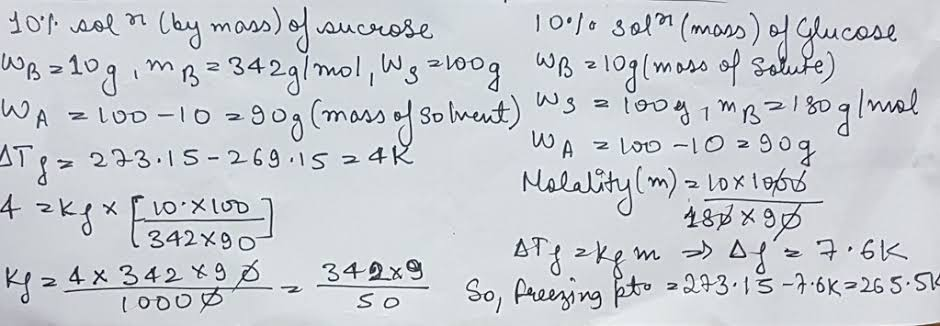 10% sol n (by mass) of sucrose
W_B = 10g, m_B = 342g/mol, W_S = 100g
W_A = 100 - 10 = 90g (mass of solvent)
ΔT_f = 273.15 - 269.15 = 4K
4 = K_f × [10 × 100 / 342 × 90]
K_f = 4 × 342 × 90 / 10000 = 342 × 9 / 50
10% sol^n (mass) of Glucose
W_B = 10g (mass of solute)
W_S = 100g, m_B = 180g/mol
W_A = 100 - 10 = 90g
Molality (m) = 10 × 1000 / 180 × 90
ΔT_f = K_f m ⇒ Δ_f = 7.6K
So, freezing pt. = 273.15 - 7.6K = 265.5K